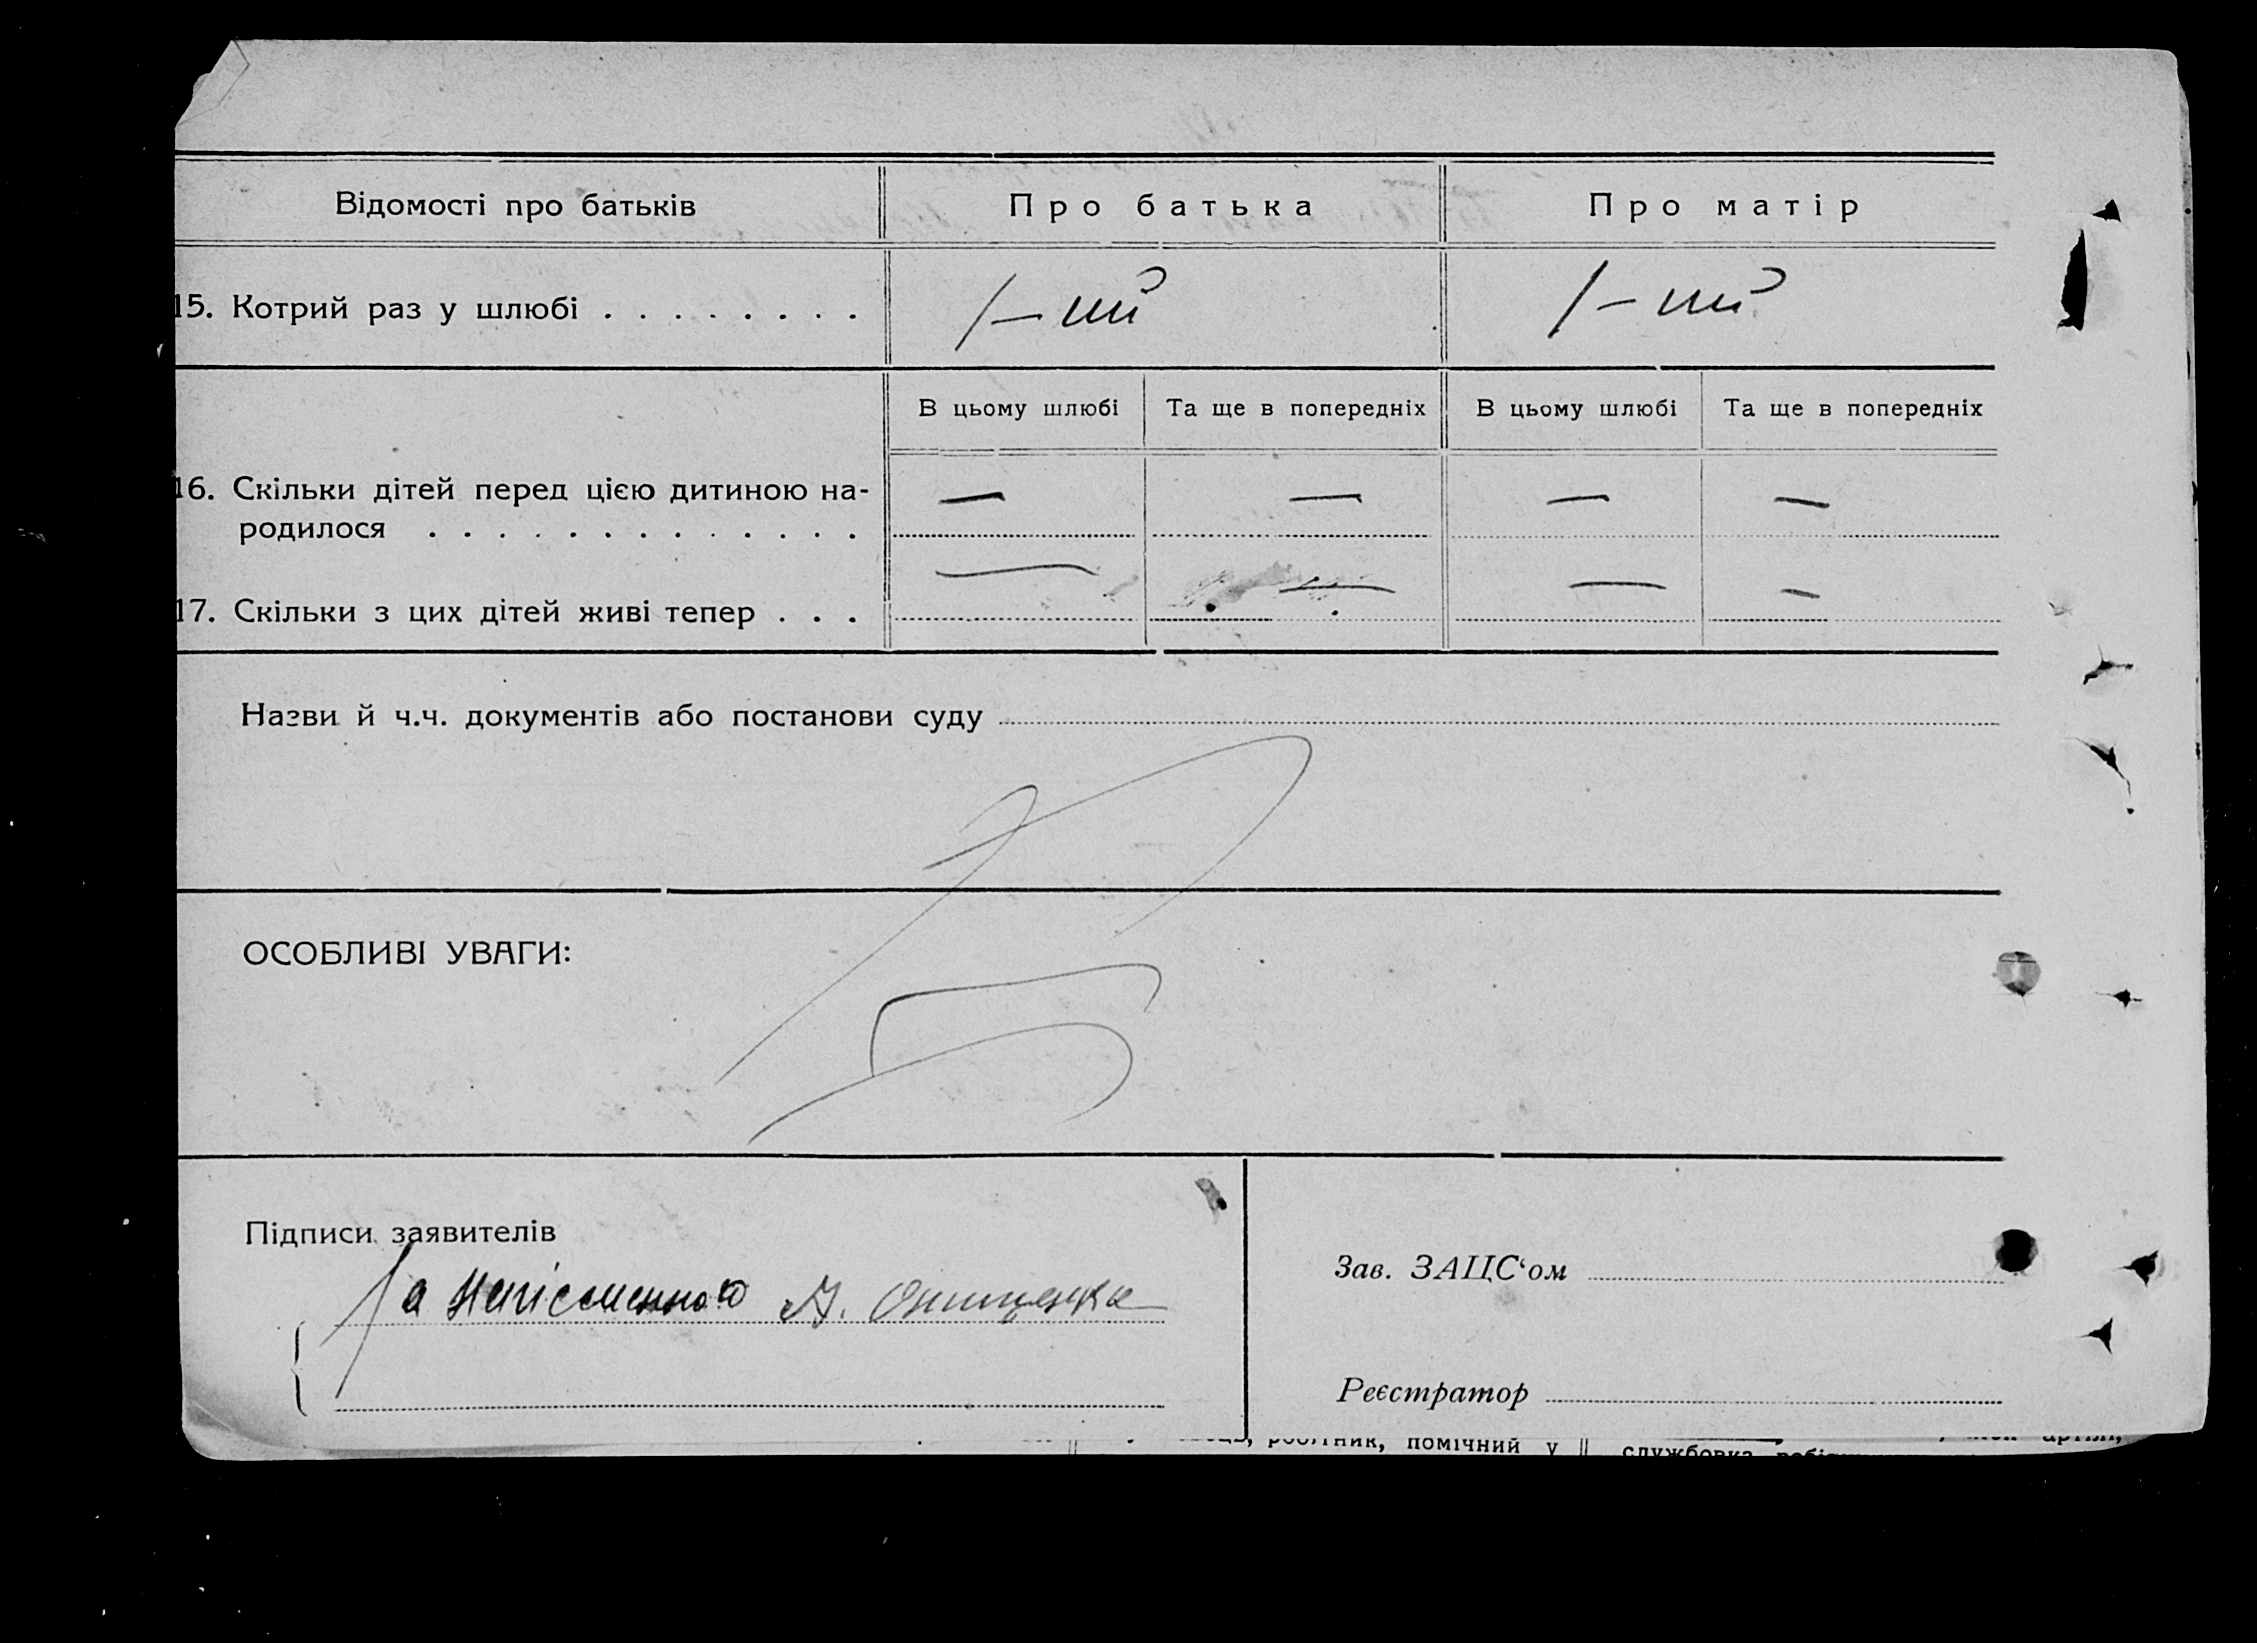 Відомості про батьків Про батька Про матір
15. Котрий раз у шлюбі . . . . . . . . 1-ий 1-ий
В цьому шлюбі Та ще в попередніх В цьому шлюбі Та ще в попередніх
16. Скільки дітей перед цією дитиною на- — — — —
родилося . . . . . . . . . . . . .
17. Скільки з цих дітей живі тепер . . . — — — —
Назви й ч.ч. документів або постанови суду
ОСОБЛИВІ УВАГИ:
Підписи заявителів
Зав. ЗАЦС‘ом
За неписьменного А. Онищенко
Реєстратор
робітник, помічний у службовка